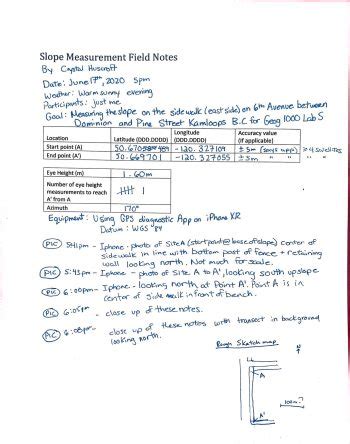 Slope Measurement Field Notes
By Crystal Huscroft
Date: June 17th, 2020 5pm
Weather: Warm sunny evening
Participants: just me
Goal: Measuring the slope on the sidewalk (east side) on 6th Avenue between
Dominion and Pine Street Kamloops B.C for Geog 1000 Lab 5
Location Latitude (DDD.DDDD) Longitude (DDD.DDDD) Accuracy value (if applicable)
Start point (A) -120.327109 ±5m (says app) ≥4 satellites
End point (A') 50.669701 -120.327055 ±5m " " "
Eye Height (m) 1.60m
Number of eye height measurements to reach A' from A 𝍸 |
Azimuth 170°
Equipment: Using GPS diagnostic App on iPhone XR
Datum: WGS "84
PIC 5:41pm - Iphone - photo of Site A (start point @ base of slope) center of
sidewalk in line with bottom post of fence + retaining
wall looking north. Not much for scale.
PIC 5:43pm - Iphone - photo of Site A to A', looking south upslope
PIC 6:00pm - Iphone - looking north at Point A'. Point A is in
center of sidewalk in front of bench.
PIC 6:05pm - close up of these notes.
PIC 6:08pm - close up of these notes with transect in background
looking north.
Rough Sketch map
N
A
A'
100m?